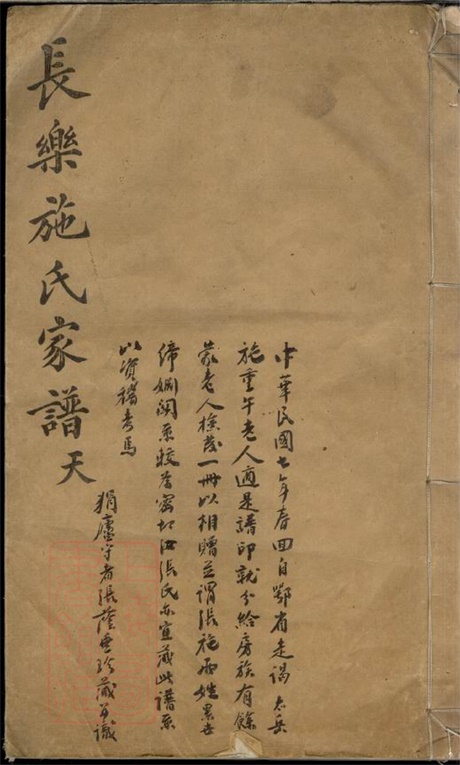 長樂施氏家譜 天
中華民國七年春回自鄂省走謁太岳
施重午老人適是譜印就分給房族有餘
蒙老人檢幾一冊以相贈並謂張施兩姓累世
締姻関系較為密切江張氏亦宜藏此譜系
以資稽考焉
狷廬守者張蔭 珍藏并識